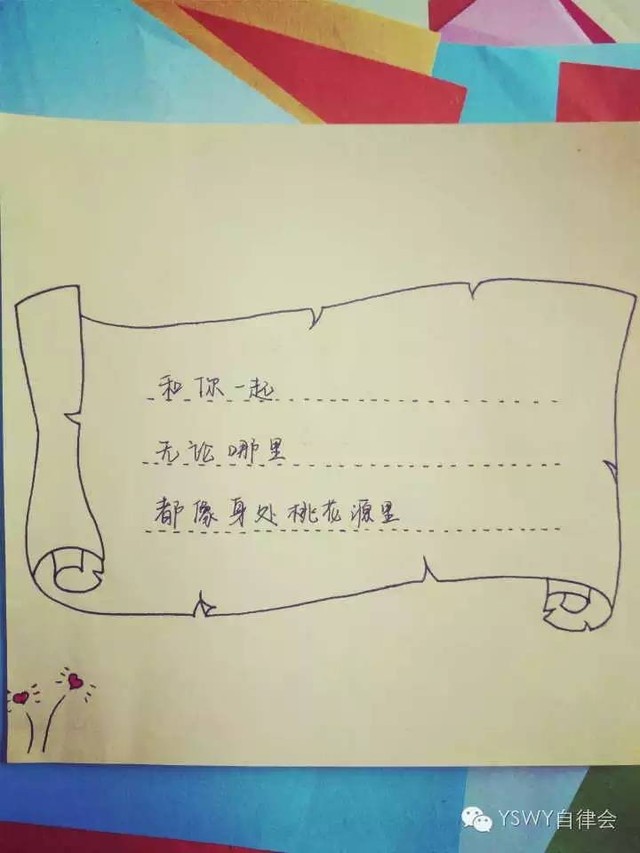 和你一起
无论哪里
都像身处桃花源里
YSWY自律会